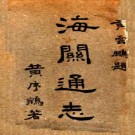 海關通志
黃序鵷著